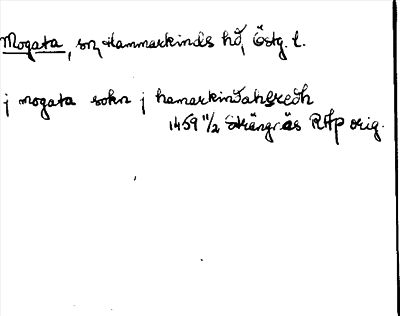 Mogata, sn, Hammarkinds hd, Östg. l.
j mogata sokn j hamarkindahæredh
1459 11/2 Strängnäs RAp orig.